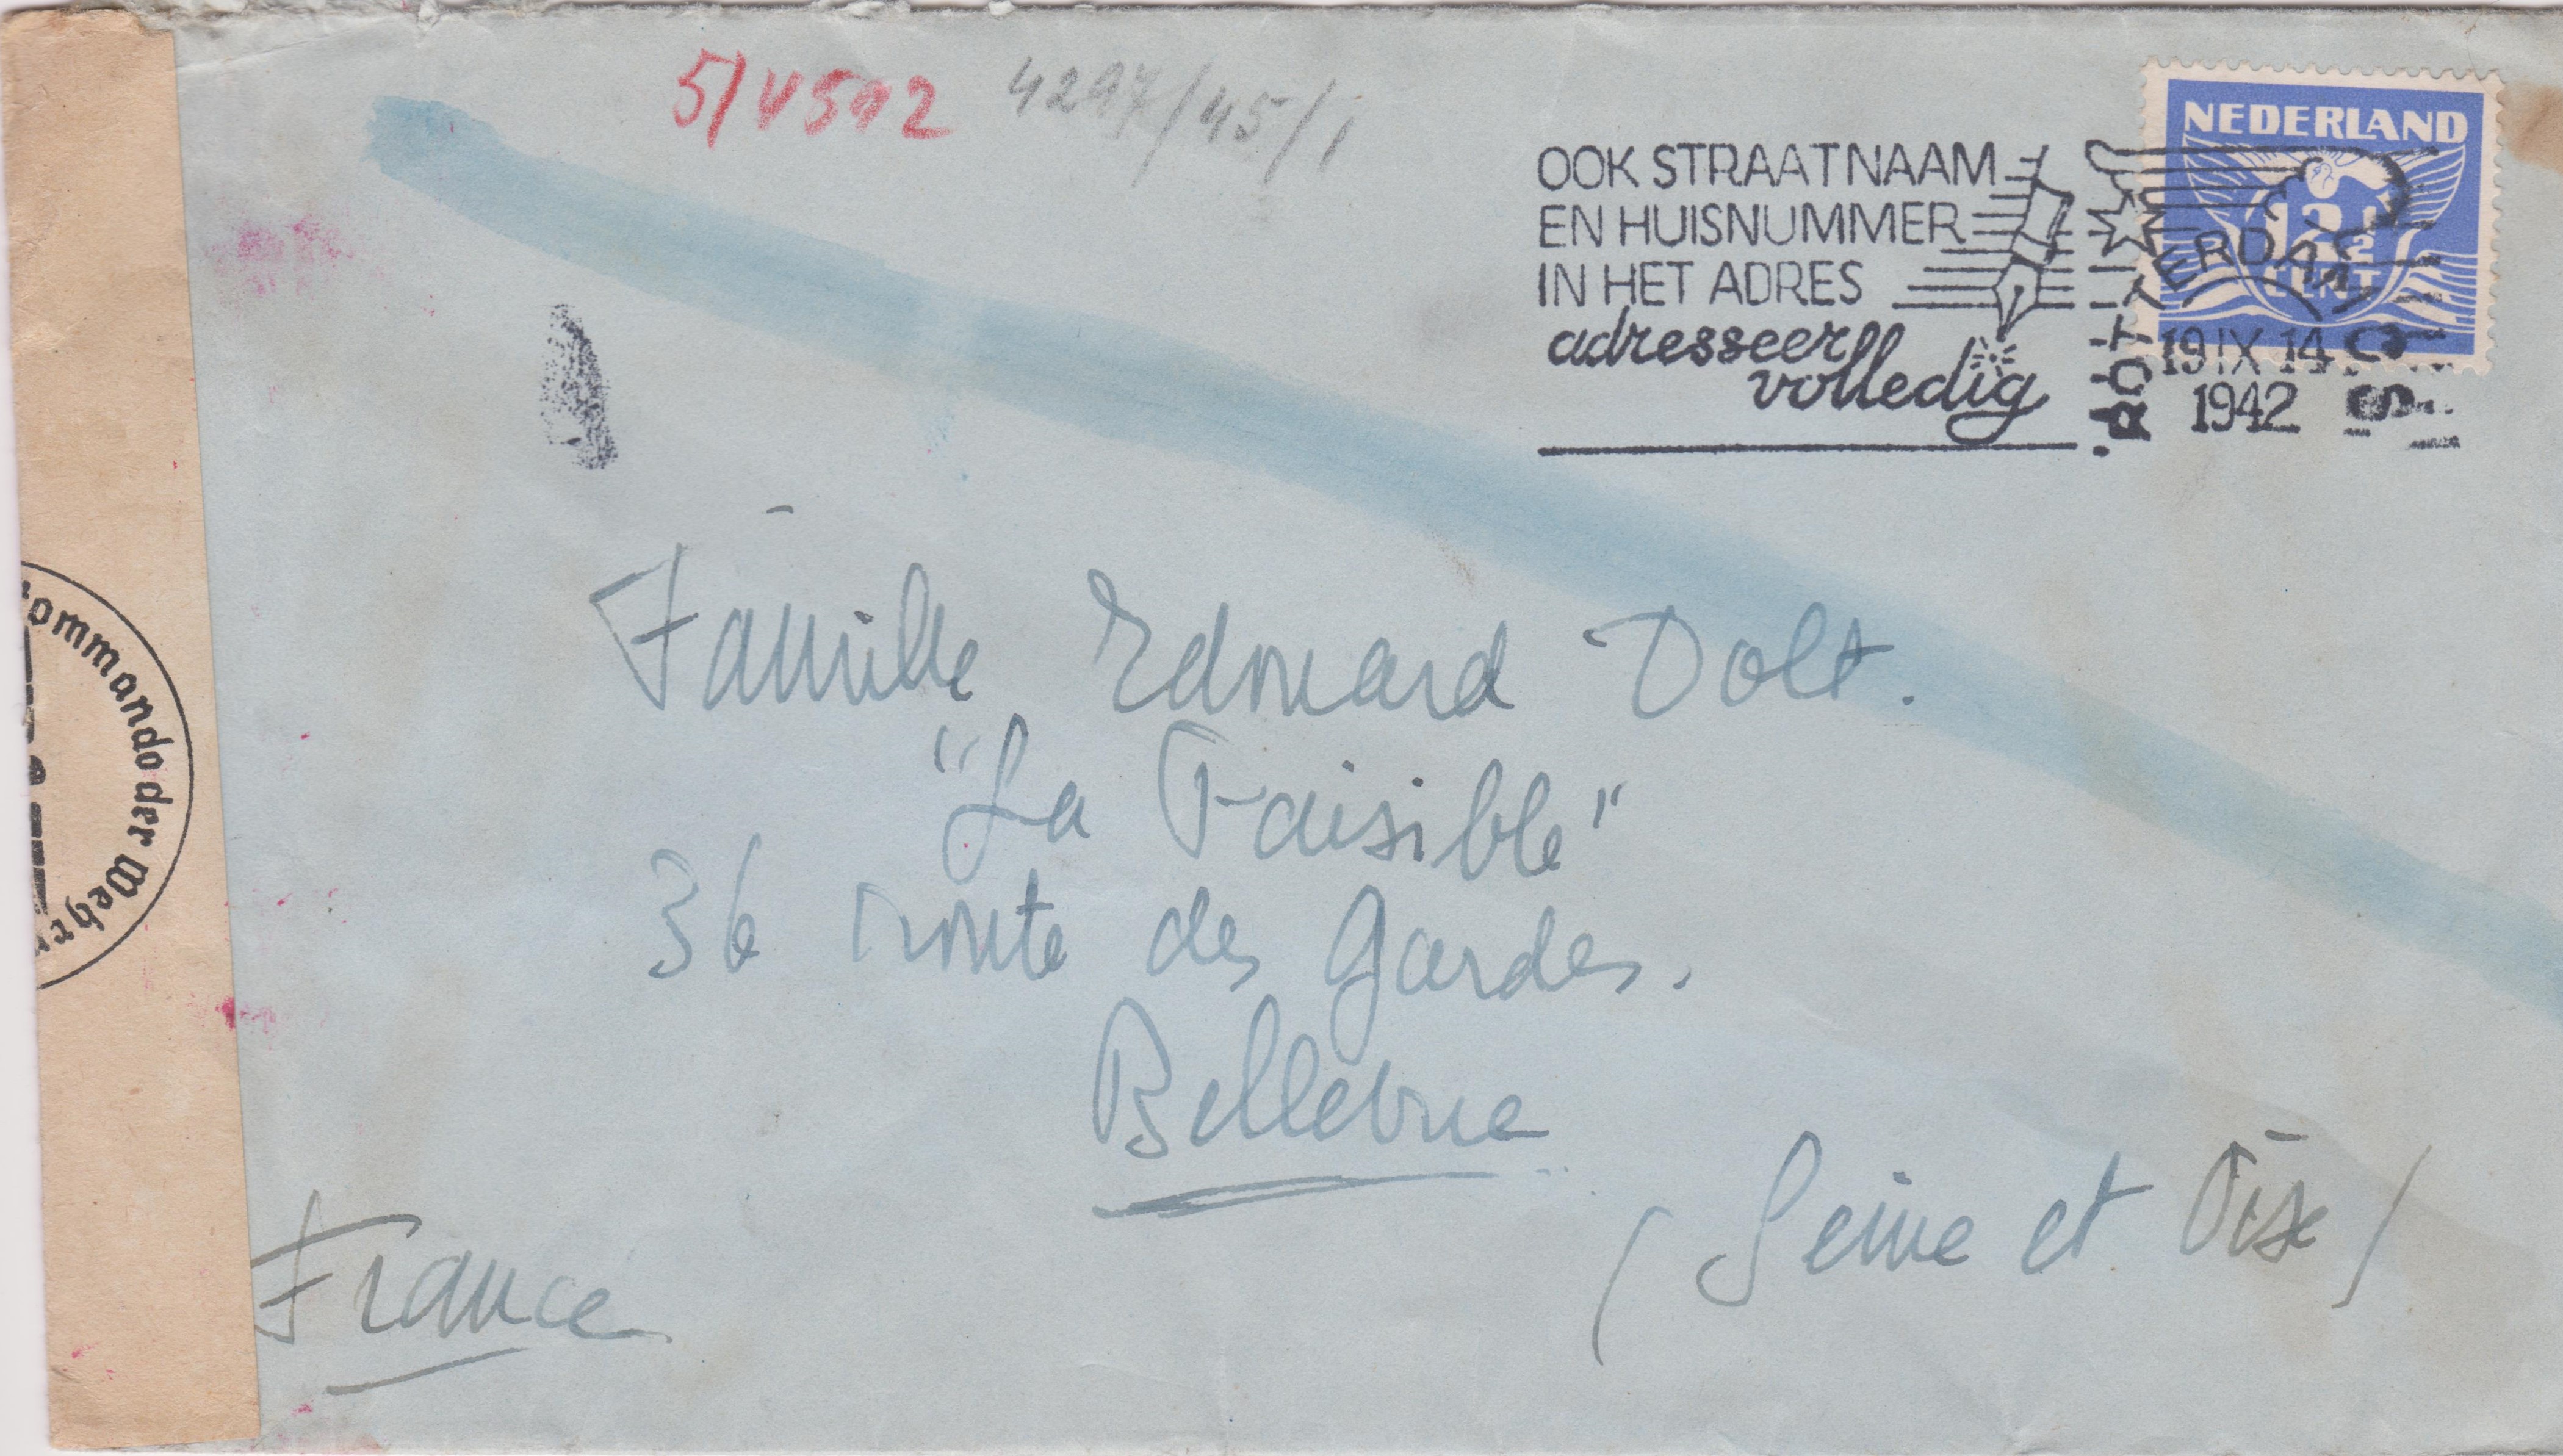 5/4592 4297/45/1
NEDERLAND
12½
CENT
OOK STRAATNAAM
EN HUISNUMMER
IN HET ADRES
adresseer
volledig
ROTTERDAM
19 IX 14
1942
Famille Edouard Dolt.
"La Paisible"
36 route des Gardes.
Bellevue
(Seine et Oise)
France
ommando der Wehr